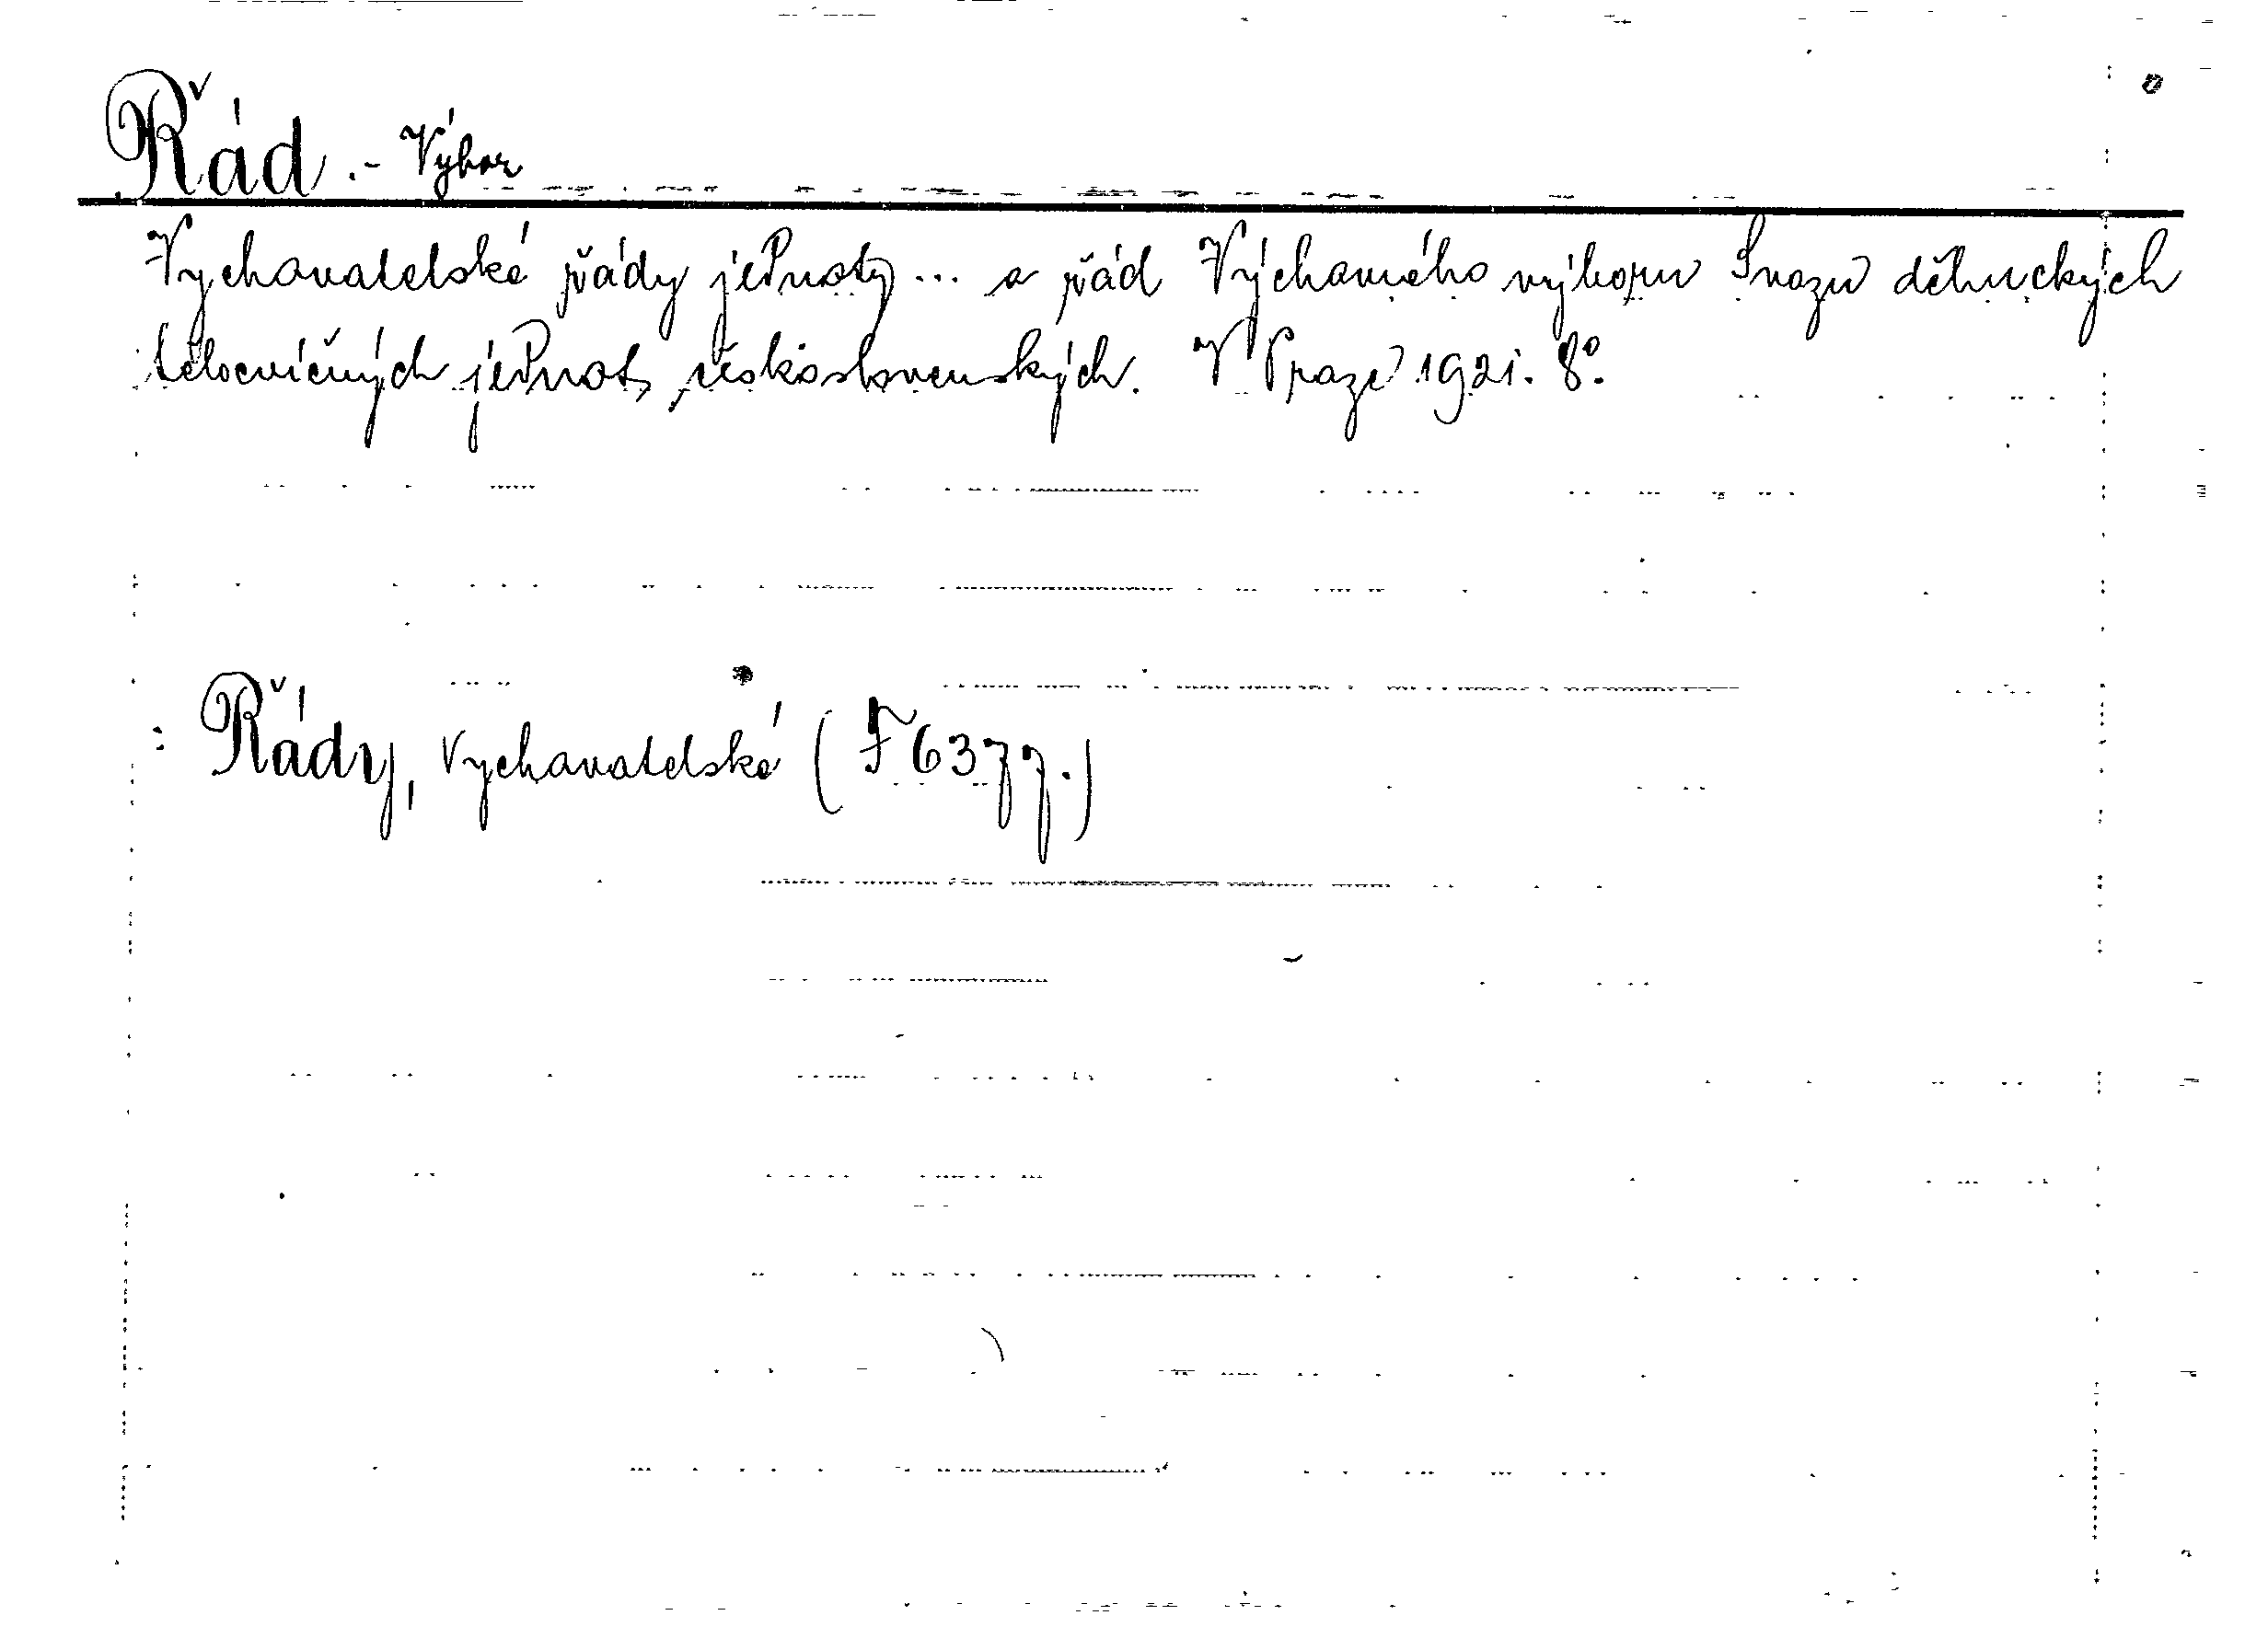 Řád .- Výbor
Vychovatelské řády jednoty ... a řád Výchovného výboru Svazu dělnických
tělocvičných jednot československých. V Praze 1921. 8°.
: Řády, Vychovatelské (F 6377.)